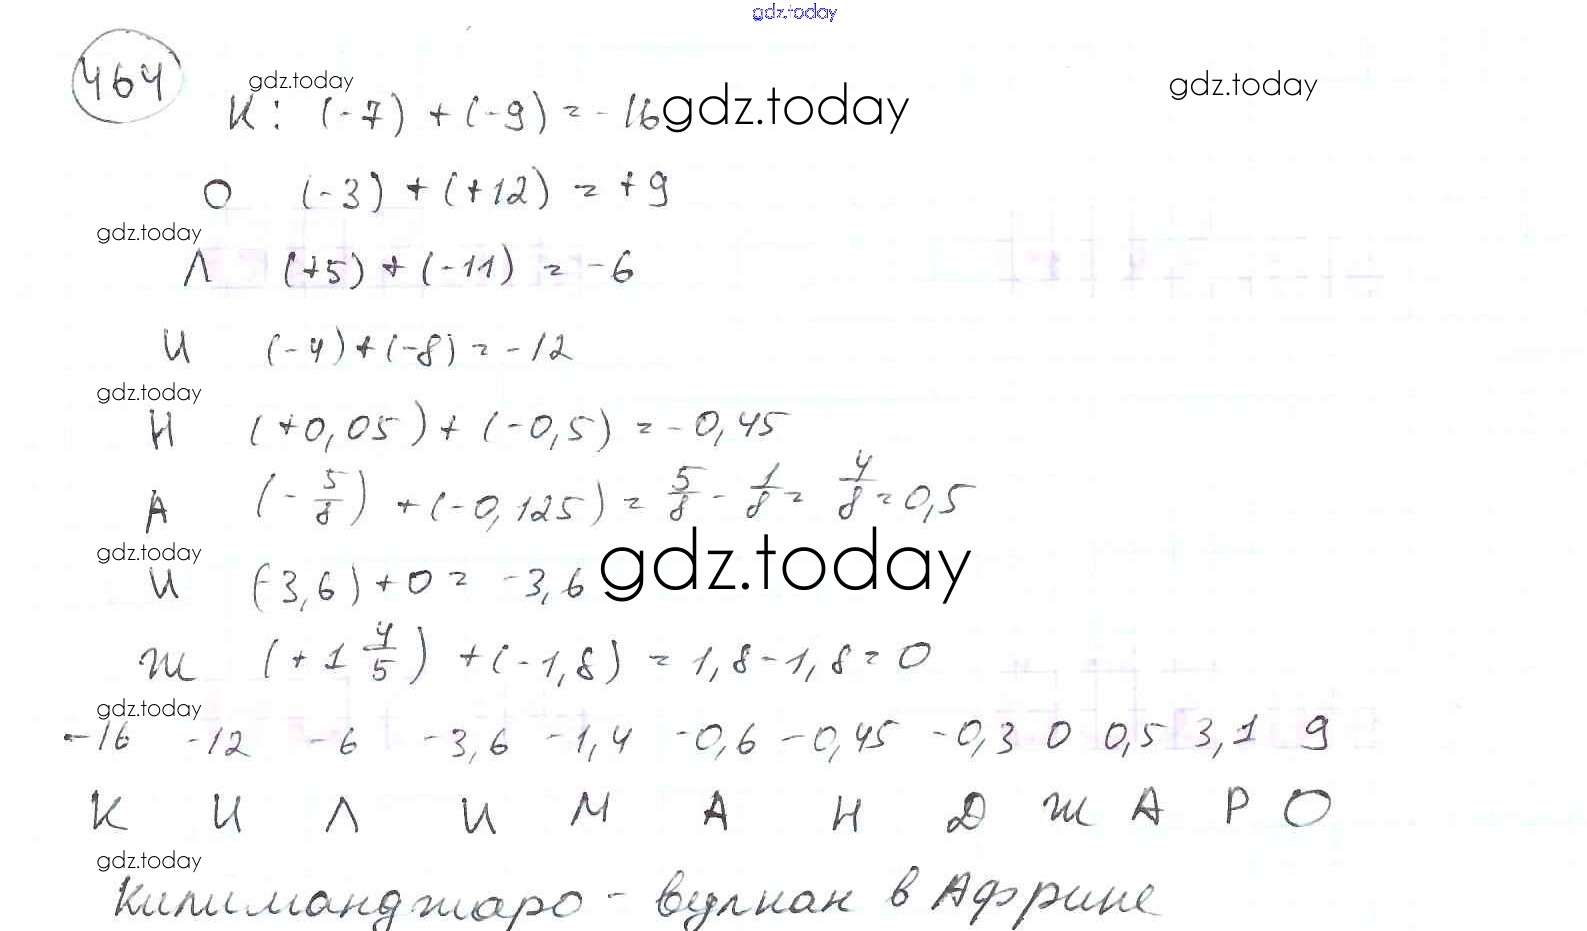 gdz.today
464
gdz.today
К: (-7) + (-9) = -16
gdz.today
gdz.today
О (-3) + (+12) = +9
gdz.today
Л (+5) + (-11) = -6
И (-4) + (-8) = -12
gdz.today
Н (+0,05) + (-0,5) = -0,45
А (-5/8) + (-0,125) = 5/8 - 1/8 = 4/8 = 0,5
gdz.today
И (-3,6) + 0 = -3,6
gdz.today
Ж (+1 4/5) + (-1,8) = 1,8-1,8 = 0
gdz.today
-16 -12 -6 -3,6 -1,4 -0,6 -0,45 -0,3 0 0,5 3,1 9
К И Л И М А Н Д Ж А Р О
gdz.today
Килиманджаро - вулкан в Африке